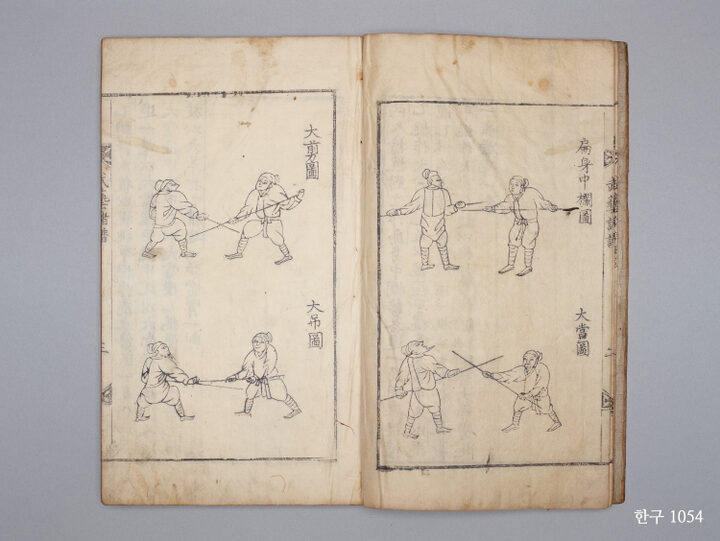 武藝諸譜
扁身中欄圖
大當圖
大剪圖
大吊圖
武藝諸譜
한구 1054